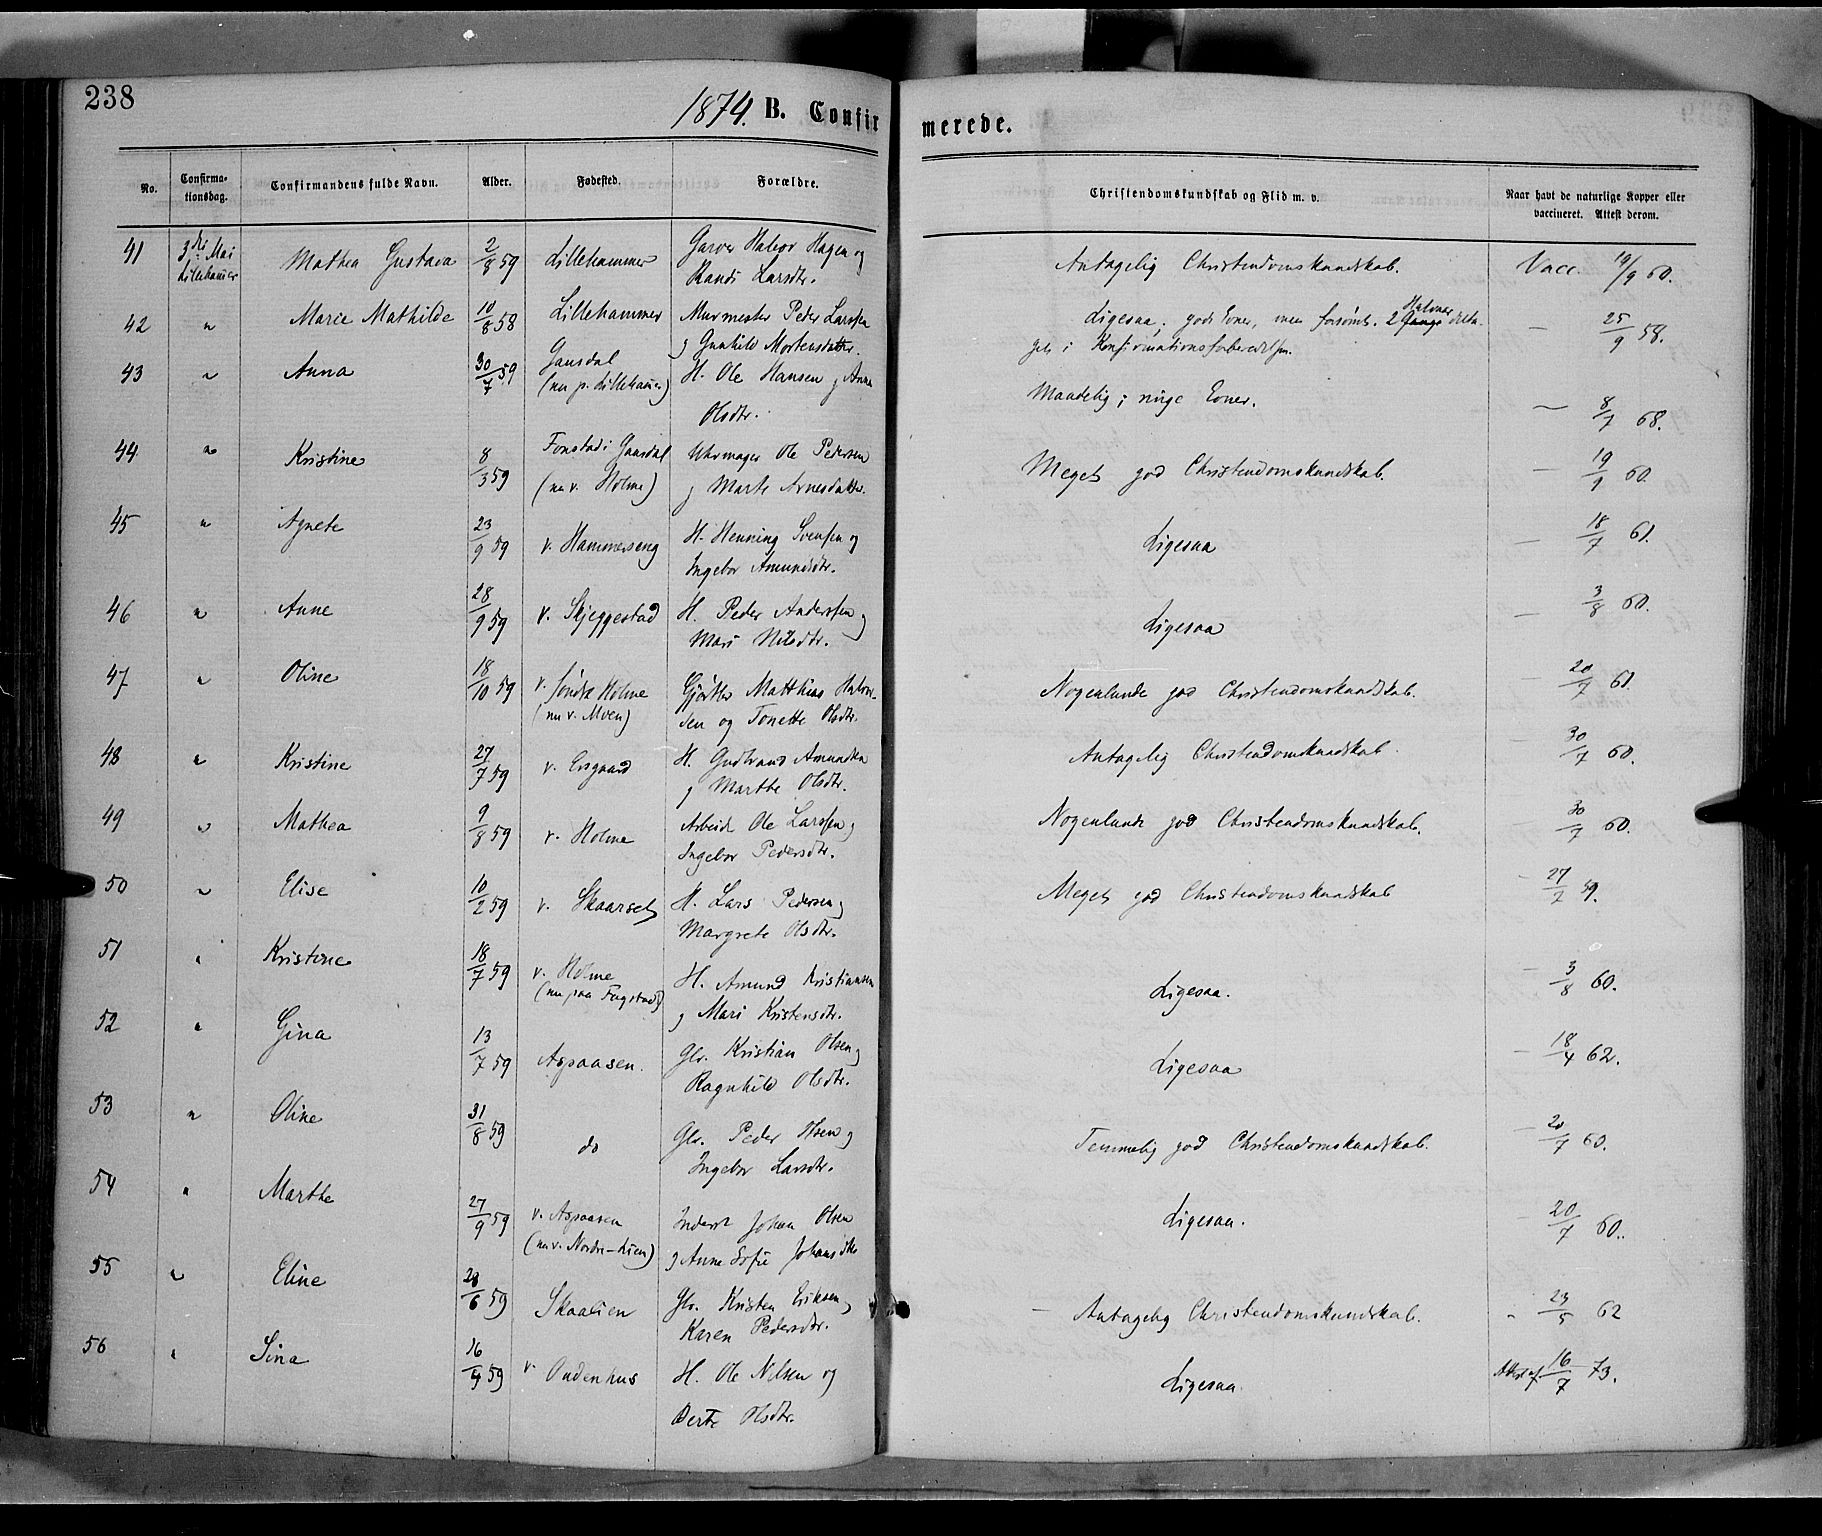 238
1874. B. Confirmerede.
No. Confirmationsdag. Confirmandens fulde Navn. Alder. Fødested. Forældre. Christendomskundskab og Flid m. v. Naar havt de naturlige Kopper eller vaccineret. Attest derom.
41 3die Mai Mathea Gustava 2/8 59 Lillehammer Garver Halvor Hagen og Antagelig Christendomskundskab. Vacc. 19/9 60.
Lillehamer Randi Larsdtr.
42 " Marie Mathilde 10/8 58 Lillehammer Murmester Peder Larssen Ligesaa; gode Evner, men forsømt. 2 Halvaar delta- — 25/9 58.
og Gunhild Mortensdatter. get i Konfirmationsforberedelsen.
43 " Anna 30/7 59 Gausdal H. Ole Hansen og Anne Maadelig; ringe Evner. — 8/7 68.
(nu p. Lillehamer) Olsdtr.
44 " Kristine 8/3 59 Fonstad i Gausdal Uhrmager Ole Pedersen Meget god Christendomskundskab. — 19/9 60.
(nu v. Holme) og Marte Arnesdatter.
45 " Agnete 23/9 59 v. Hammerseng H. Henning Svensen og Ligesaa — 18/7 61.
Ingebor Amundsdtr.
46 " Anne 28/9 59 v. Skjeggestad H. Peder Anderssen og Ligesaa — 3/8 60.
Mari Nilsdtr.
47 " Oline 18/10 59 v. Søndre Holme Gjørtler Matthias Halvor- Nogenlunde god Christendomskundskab. — 20/7 61.
(nu v. Moen) sen og Tonette Olsdtr.
48 " Kristine 27/7 59 v. Ersgaard H. Gudbrand Amundsen Antagelig Christendomskundskab. — 30/7 60.
og Marthe Olsdtr.
49 " Mathea 9/8 59 v. Holme Arbeid. Ole Larssen og Nogenlunde god Christendomskundskab. 30/7 60.
Ingebor Pedersdtr.
50 " Elise 10/2 59 v. Skaarset H. Lars Pedersen og Meget god Christendomskundskab — 27/7 59.
Margrete Olsdtr.
51 " Kristine 18/7 59 v. Holme H. Amund Kristiansen Ligesaa. — 3/8 60.
(nu paa Fagstad) og Mari Kristensdtr.
52 " Gina 13/7 59 Aspaasen. Glr. Kristian Olsen og Ligesaa — 18/4 62.
Ragnhild Olsdtr.
53 " Oline 31/8 59 do Glr. Peder Olsen og Temmelig god Christendomskundskab. — 20/7 60.
Ingebor Larsdtr.
54 " Marthe 27/9 59 v. Aspaasen Inderst Johan Olsen Ligesaa. — 20/7 60.
(nu v. Nordre-Lien) og Anne Sofie Johansdtr
55 " Eline 28/6 59 Skaalien Glr. Kristen Eriksen og — Antagelig Christendomskundskab. " 23/5 62
Karen Pedersdtr.
56 " Sina 16/4 59 v. Oudenhus H. Ole Nilsen og Ligesaa. Attest af 16/7 73.
Berte Olsdtr.